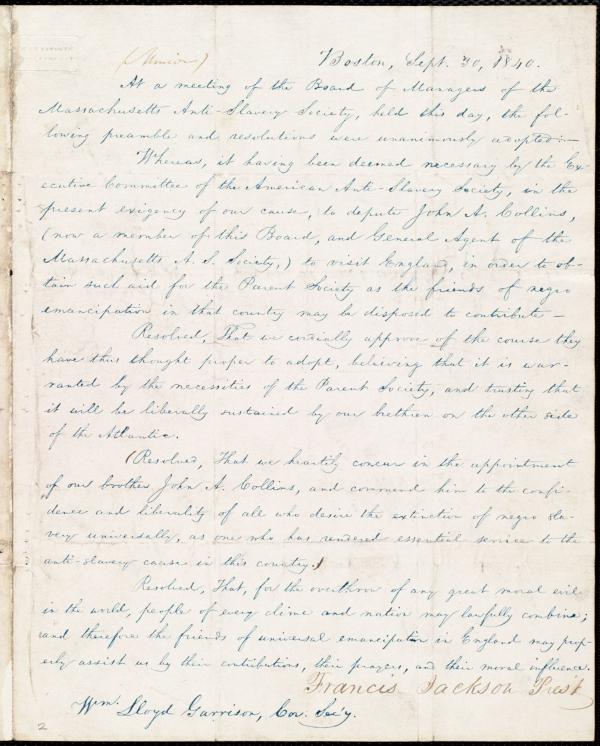 (Minion)
Boston, Sept. 30, 1840.
At a meeting of the Board of Managers of the
Massachusetts Anti-Slavery Society, held this day, the fol-
lowing preamble and resolutions were unanimously adopted:—
Whereas, it having been deemed necessary by the Ex-
ecutive Committee of the American Anti-Slavery Society, in the
present exigency of our cause, to depute John A. Collins,
(now a member of this Board, and General Agent of the
Massachusetts A. S. Society,) to visit England, in order to ob-
tain such aid for the Parent Society as the friends of negro
emancipation in that country may be disposed to contribute—
Resolved, That we cordially approve of the course they
have thus thought proper to adopt, believing that it is war-
ranted by the necessities of the Parent Society, and trusting that
it will be liberally sustained by our brethren on the other side
of the Atlantic.
(Resolved, That we heartily concur in the appointment
of our brother John A. Collins, and commend him to the confi-
dence and liberality of all who desire the extinction of negro sla-
very universally, as one who has rendered essential service to the
anti-slavery cause in this country.)
Resolved, That, for the overthrow of any great moral evil
in the world, people of every clime and nation may lawfully combine;
and therefore the friends of universal emancipation in England may prop-
erly assist us by their contributions, their prayers, and their moral influence.
Francis Jackson Pres't
Wm. Lloyd Garrison, Cor. Sec'y.
2